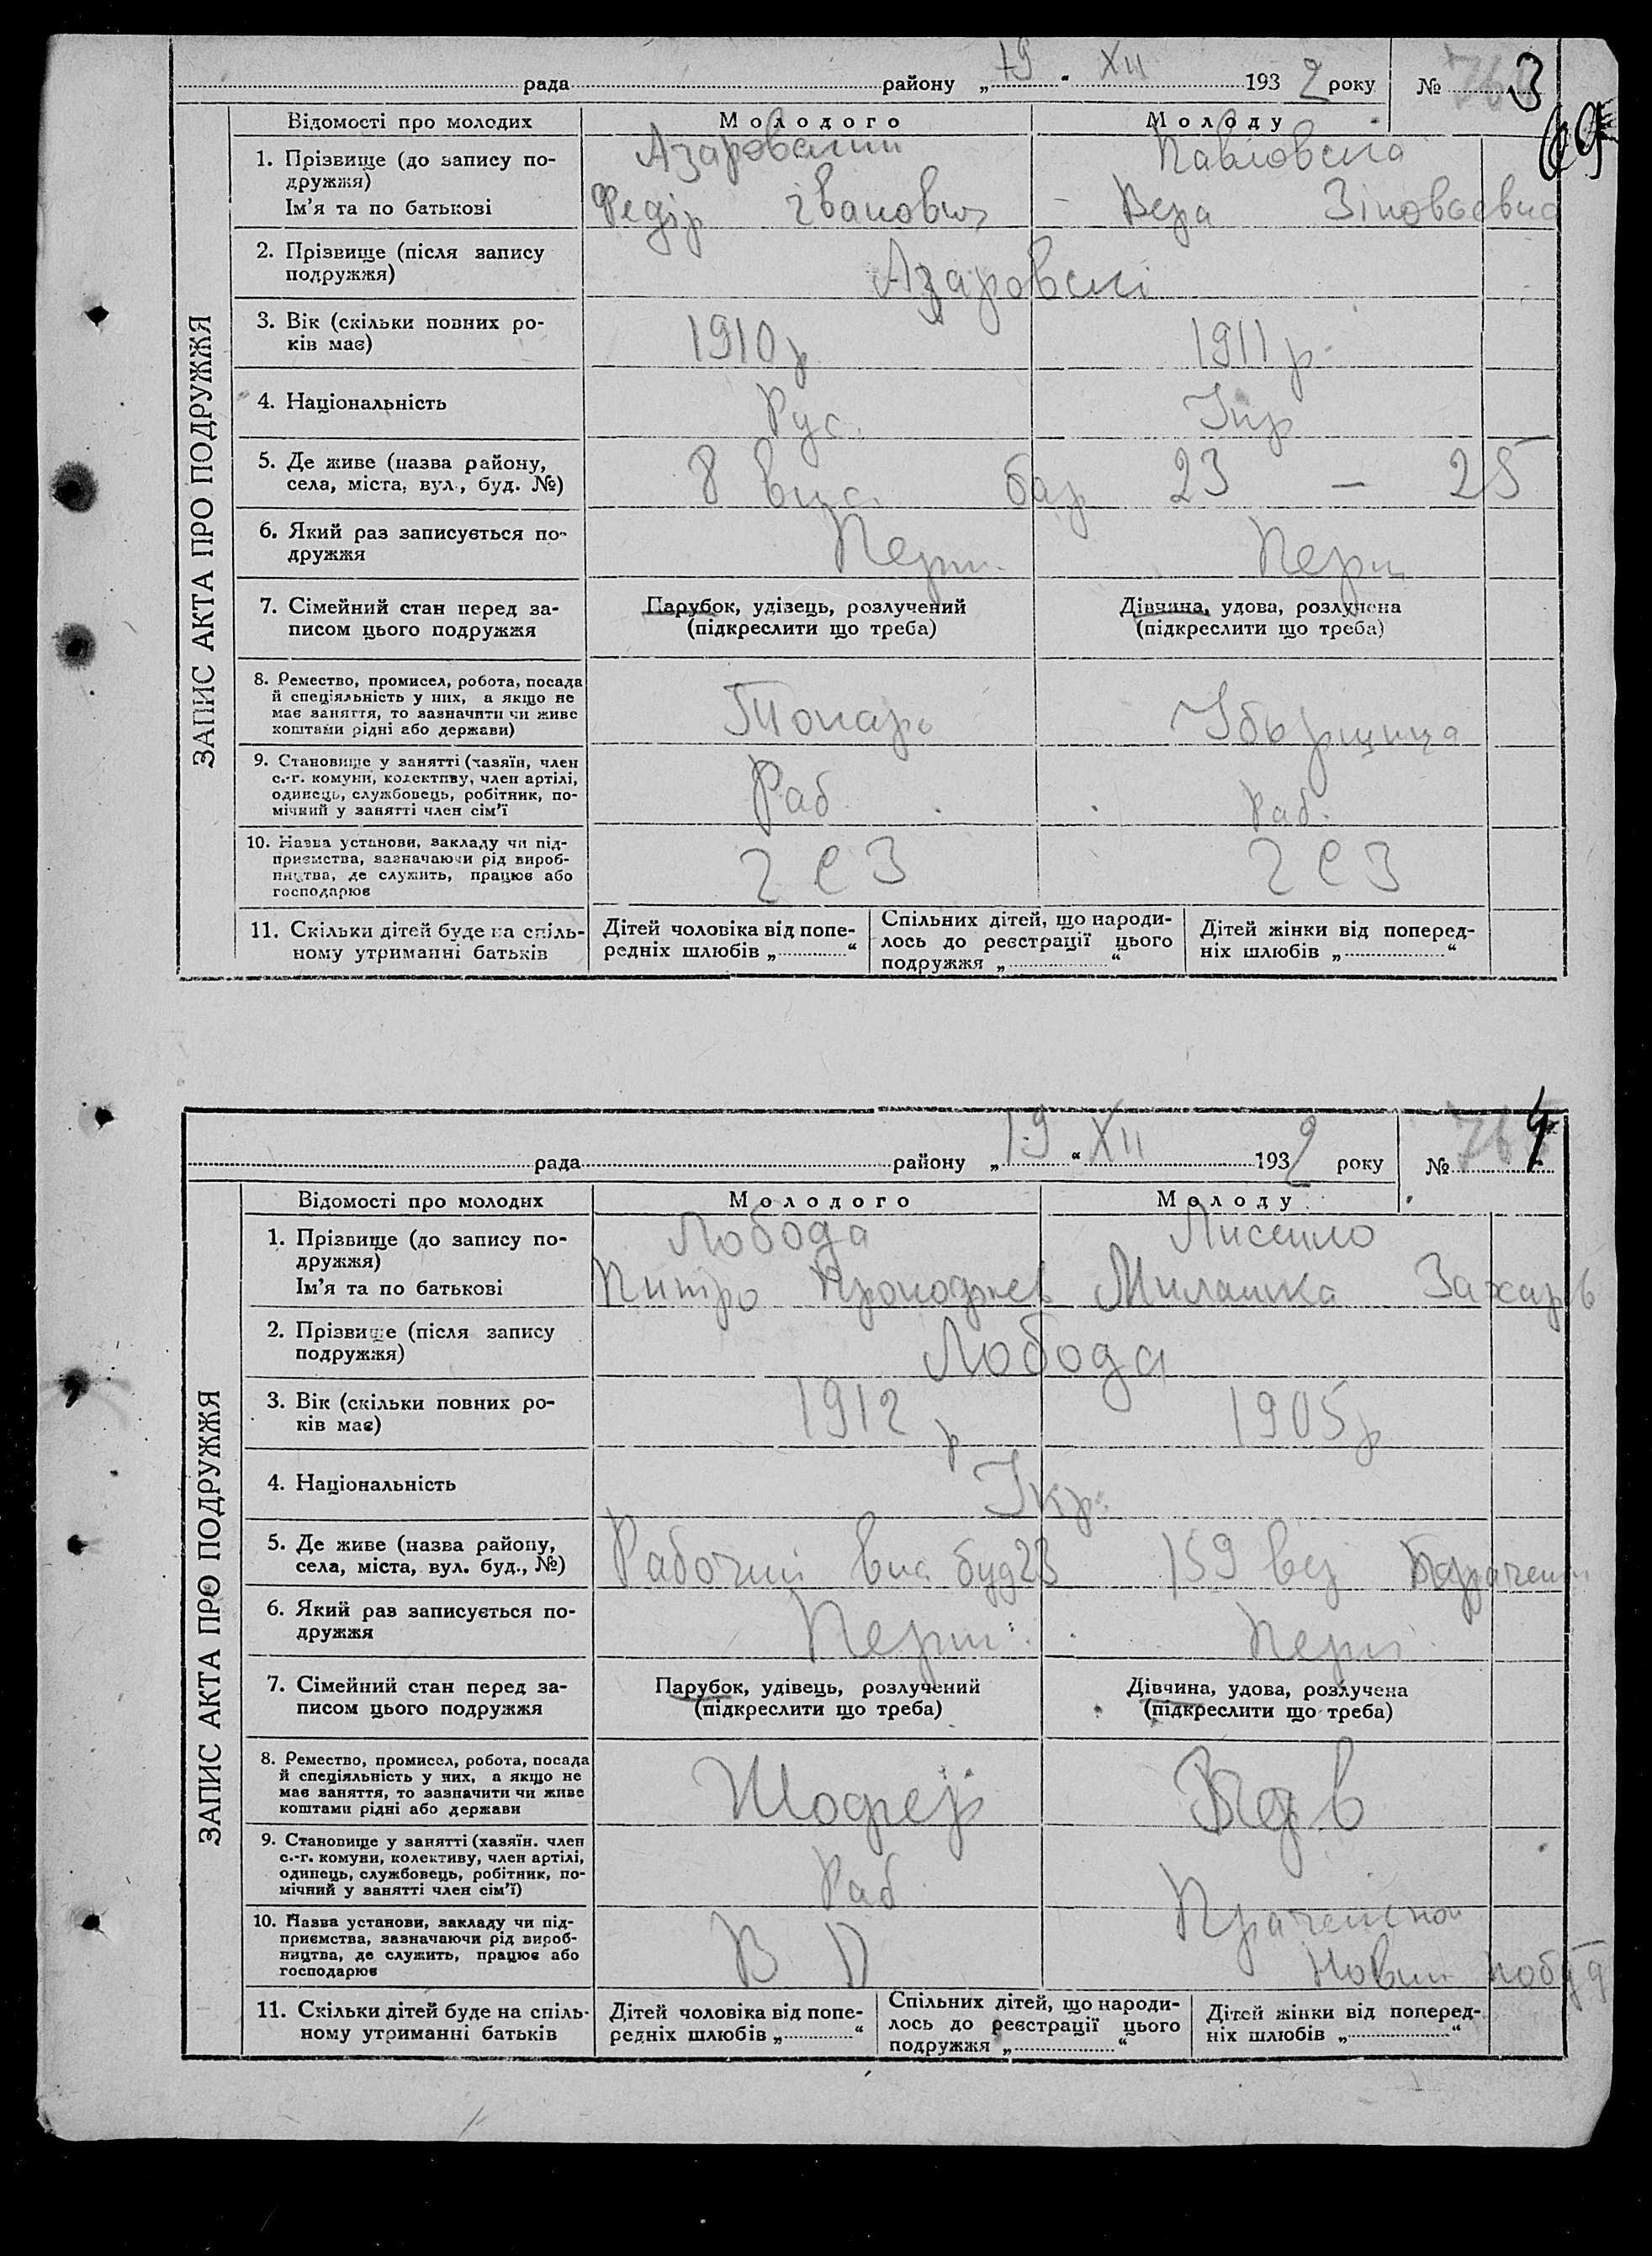 рада району „19“ XII 1932 року № 3
69
ЗАПИС АКТА ПРО ПОДРУЖЖЯ
Відомості про молодих Молодого Молоду
1. Прізвище (до запису по- Азаровский Павловска
дружжя)
Ім'я та по батькові Федір Іванович Вера Зіновьевна
2. Прізвище (після запису
подружжя) Азаровскі
3. Вік (скільки повних ро- 1910 р 1911 р
ків має)
4. Національність Рус. Укр
5. Де живе (назва району,
села, міста, вул., буд. №) 8 виса бар 23 – 25
6. Який раз записується по- Перш. Перш
дружжя
7. Сімейний стан перед за- Парубок, удівець, розлучений Дівчина, удова, розлучена
писом цього подружжя (підкреслити що треба) (підкреслити що треба)
8. Ремество, промисел, робота, посада
й спеціяльність у них, а якщо не
має заняття, то зазначити чи живе Токарь Убірщица
коштами рідні або держави)
9. Становище у занятті (хазяїн, член
с.-г. комуни, колективу, член артілі,
одинець, службовець, робітник, по- Раб. Раб.
мічний у занятті член сім'ї
10. Назва установи, закладу чи під-
приємства, зазначаючи рід вироб-
ництва, де служить, працює або
господарює
11. Скільки дітей буде на спіль- Дітей чоловіка від попе- Спільних дітей, що народи- Дітей жінки від поперед-
ному утриманні батьків редніх шлюбів „ “ лось до реєстрації цього ніх шлюбів „ “
подружжя „ “
рада районуу „19“ XII 1932 року № 4
ЗАПИС АКТА ПРО ПОДРУЖЖЯ
Відомості про молодих Молодого Молоду
1. Прізвище (до запису по- Лобода Лисенко
дружжя)
Ім'я та по батькові Питро Милашка Захарів
2. Прізвище (після запису
подружжя) Лобода
3. Вік (скільки повних ро- 1912 р 1905 р
ків має)
4. Національність Укр.
5. Де живе (назва району,
села, міста, вул. буд., №) Рабочий виса буд 23 159
6. Який раз записується по- Перш. Перш.
дружжя
7. Сімейний стан перед за- Парубок, удівець, розлучений Дівчина, удова, розлучена
писом цього подружжя (підкреслити що треба) (підкреслити що треба)
8. Ремество, промисел, робота, посада
й спеціяльність у них, а якщо не
має заняття, то зазначити чи живе Шофер
коштами рідні або держави
9. Становище у занятті (хазяїн. член
с.-г. комуни, колективу, член артілі,
одинець, службовець, робітник, по- Раб
мічний у занятті член сім'ї)
10. Назва установи, закладу чи під-
приємства, зазначаючи рід вироб-
ництва, де служить, працює або
господарює Новий побуд
11. Скільки дітей буде на спіль- Дітей чоловіка від попе- Спільних дітей, що народи- Дітей жінки від поперед-
ному утриманні батьків редніх шлюбів „ “ лось до реєстрації цього ніх шлюбів „ “
подружжя „ “